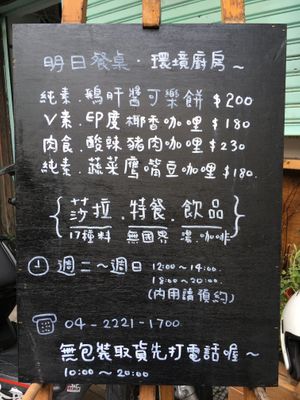 明日餐桌·環境廚房~
純素.鵝肝醬可樂餅 $200
V素.印度椰香咖哩 $180
肉食.酸辣豬肉咖哩 $230
純素.蔬菜鷹嘴豆咖哩 $180.
{莎拉.特餐.飲品}
17種料 無國界 湯.咖啡
週二~週日 12:00~14:00.
18:00~20:00.
(內用請預約)
04-2221-1700
無包裝取貨先打電話喔~
10:00~20:00